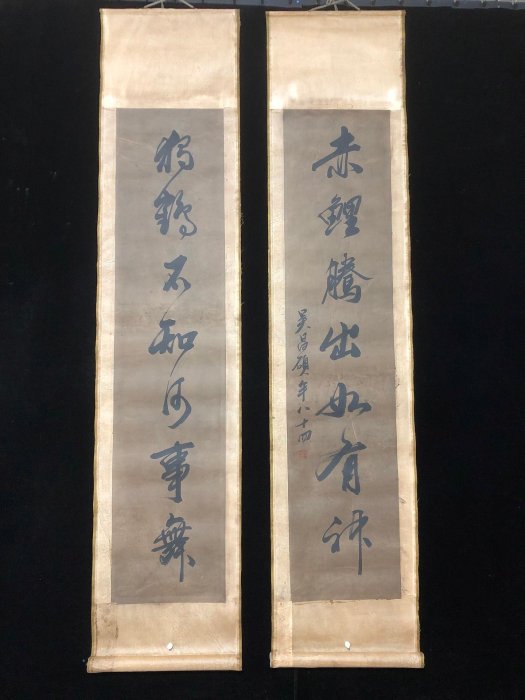 赤鯉騰出如有神
吴昌碩年八十四
獨鶴不知何事舞